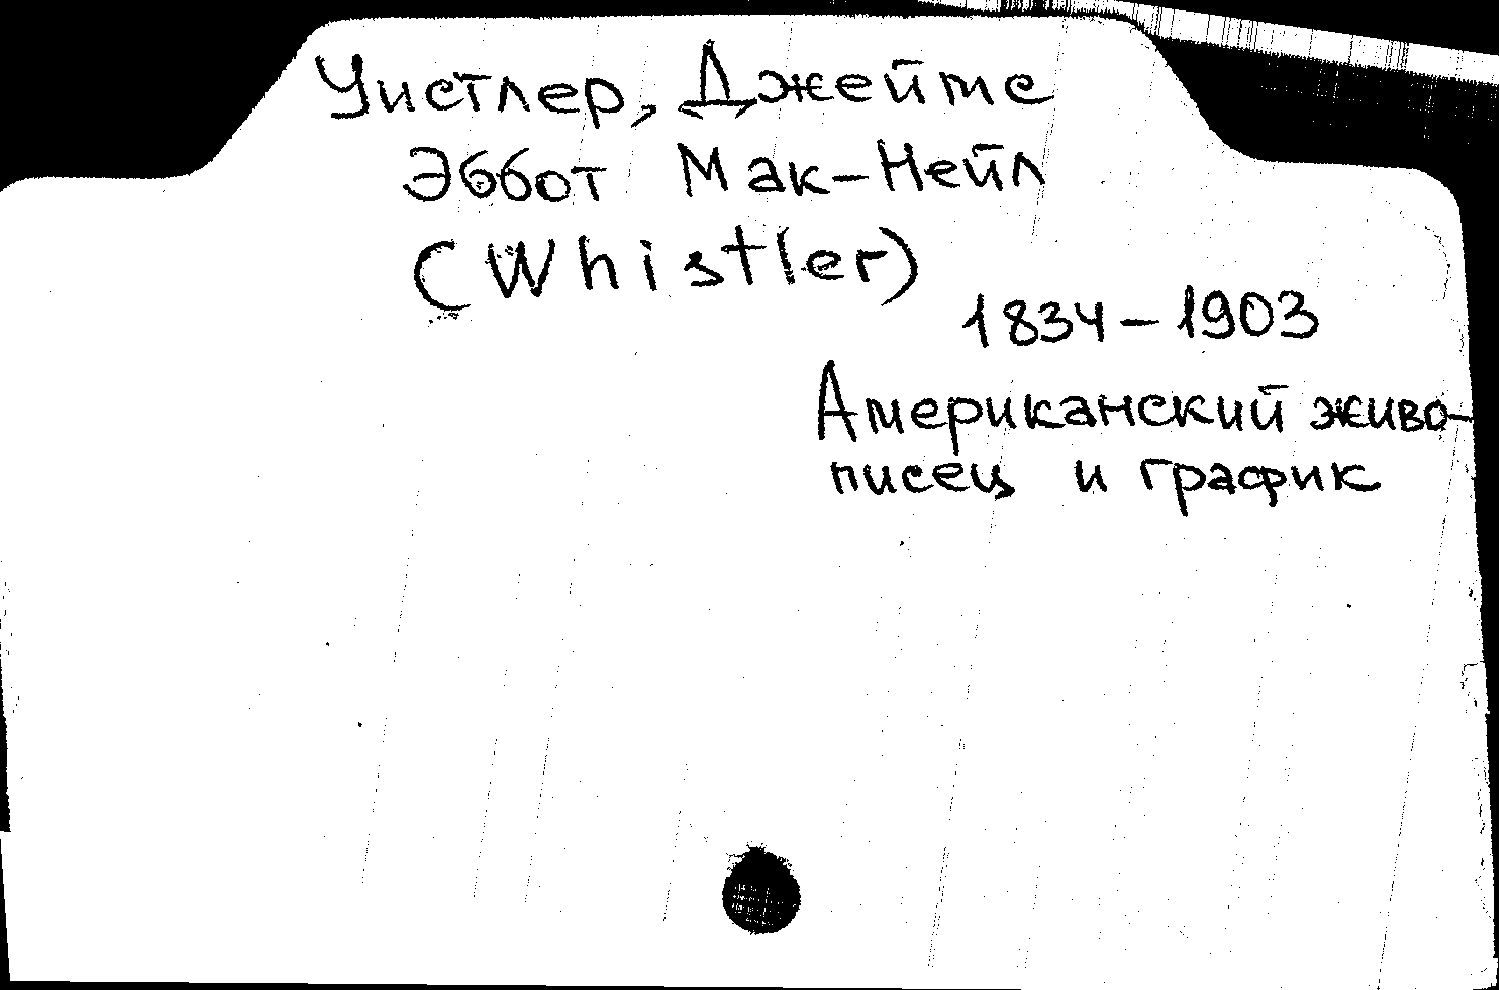 Уистлер, Джеймс
Эббот Мак-Нейл
(Whistler)
1834-1903
Американский живо-
писец и график